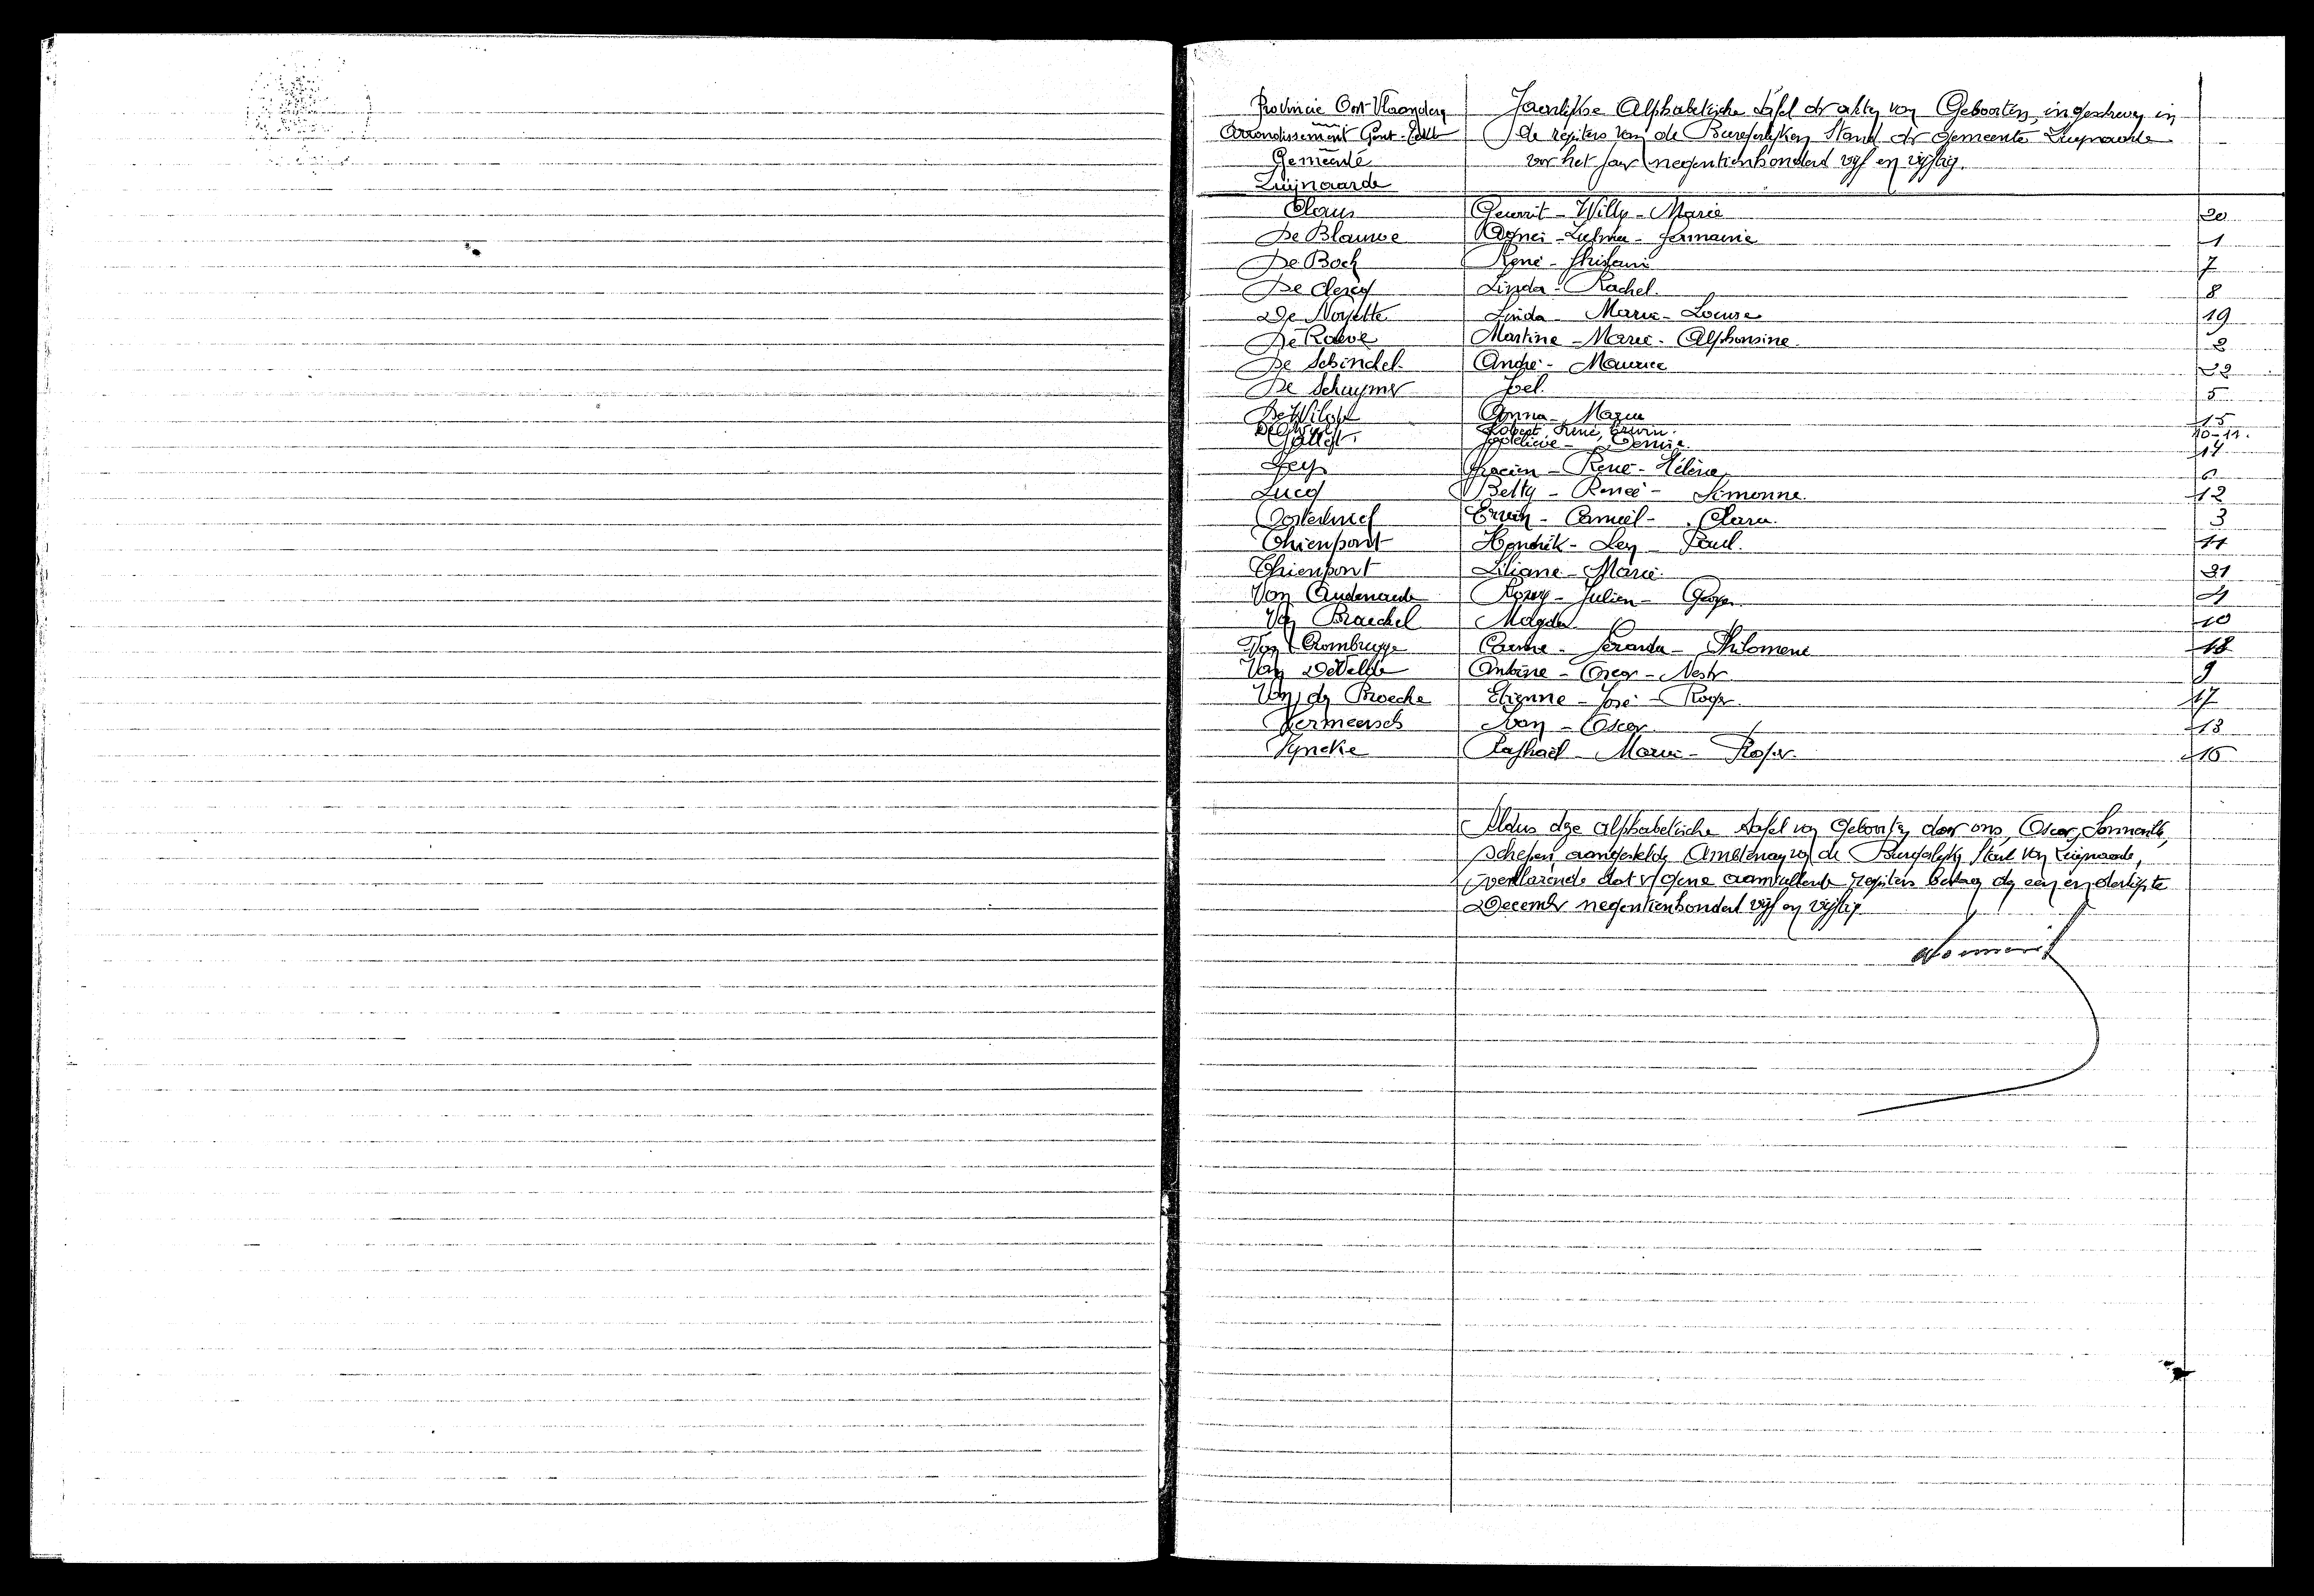 Provincie Oost-Vlaanderen
Jaarlijkse Alphabetische tafel der akten van Geboorten, ingeschreven in
Arrondissement Gent-Eeklo
de registers van de Burgerlijken Stand der gemeente Zwijnaarde
Gemeente
voor het jaar negentienhonderd vijf en vijftig.
Zwijnaarde
Claus Willy - Marie 20
De Blauwe Agnes - Zulma - Germaine 1
De Bock René - Ghislain 7
De Clercq Linda - Rachel. 8
De Noyette Linda - Marie - Louise 19
De Raeve Martine - Marie - Alphonsine. 2
De Schindel André - Maurice 22
De Schuymer Joel. 5
De Wilde Anna - Maria 15
Robert, René, Erwin. 10-11.
Denise. 14
Leys René - Hélène 6
Lucq Betty - Renée - Simonne. 12
Erwin - Camiel - Clara. 3
Thienpont Hendrik - Leon - Paul. 11
Thienpont Liliane - Marie. 21
Van Oudenaerde Romy - Julien - Georges 4
Van Braeckel Magda 10
Van Crombrugge Carine - Gerarda - Philomene 18
Van De Velde Antoine - Oscar - Nestor 9
Van den Broecke Etienne - José - Roger. 17
Vermeersch Ivan - Oscar 13
Vyncke Raphaël - Marie - Roger. 16
Aldus deze alphabetische tafel van Geboorten door ons, Oscar,
Schepen aangestelde Ambtenaar van de Burgerlijken Stand van Zwijnaarde,
verklarende dat geene aanvullende registers bestaan den een en dertigste
December negentienhonderd vijf en vijftig